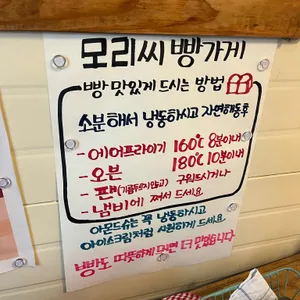 모리씨 빵가게
빵 맛있게 드시는 방법
소분해서 냉동하시고 자연해동후
- 에어프라이기 160℃ 8분이내
- 오븐 180℃ 10분이내
- 팬(기름두르지않고) 구워드시거나
- 냄비에 쪄서 드세요
아몬드슈는 꼭 냉동하시고
아이스크림처럼 시원하게 드세요.
빵도 따뜻하게 먹으면 더 맛있습니다.